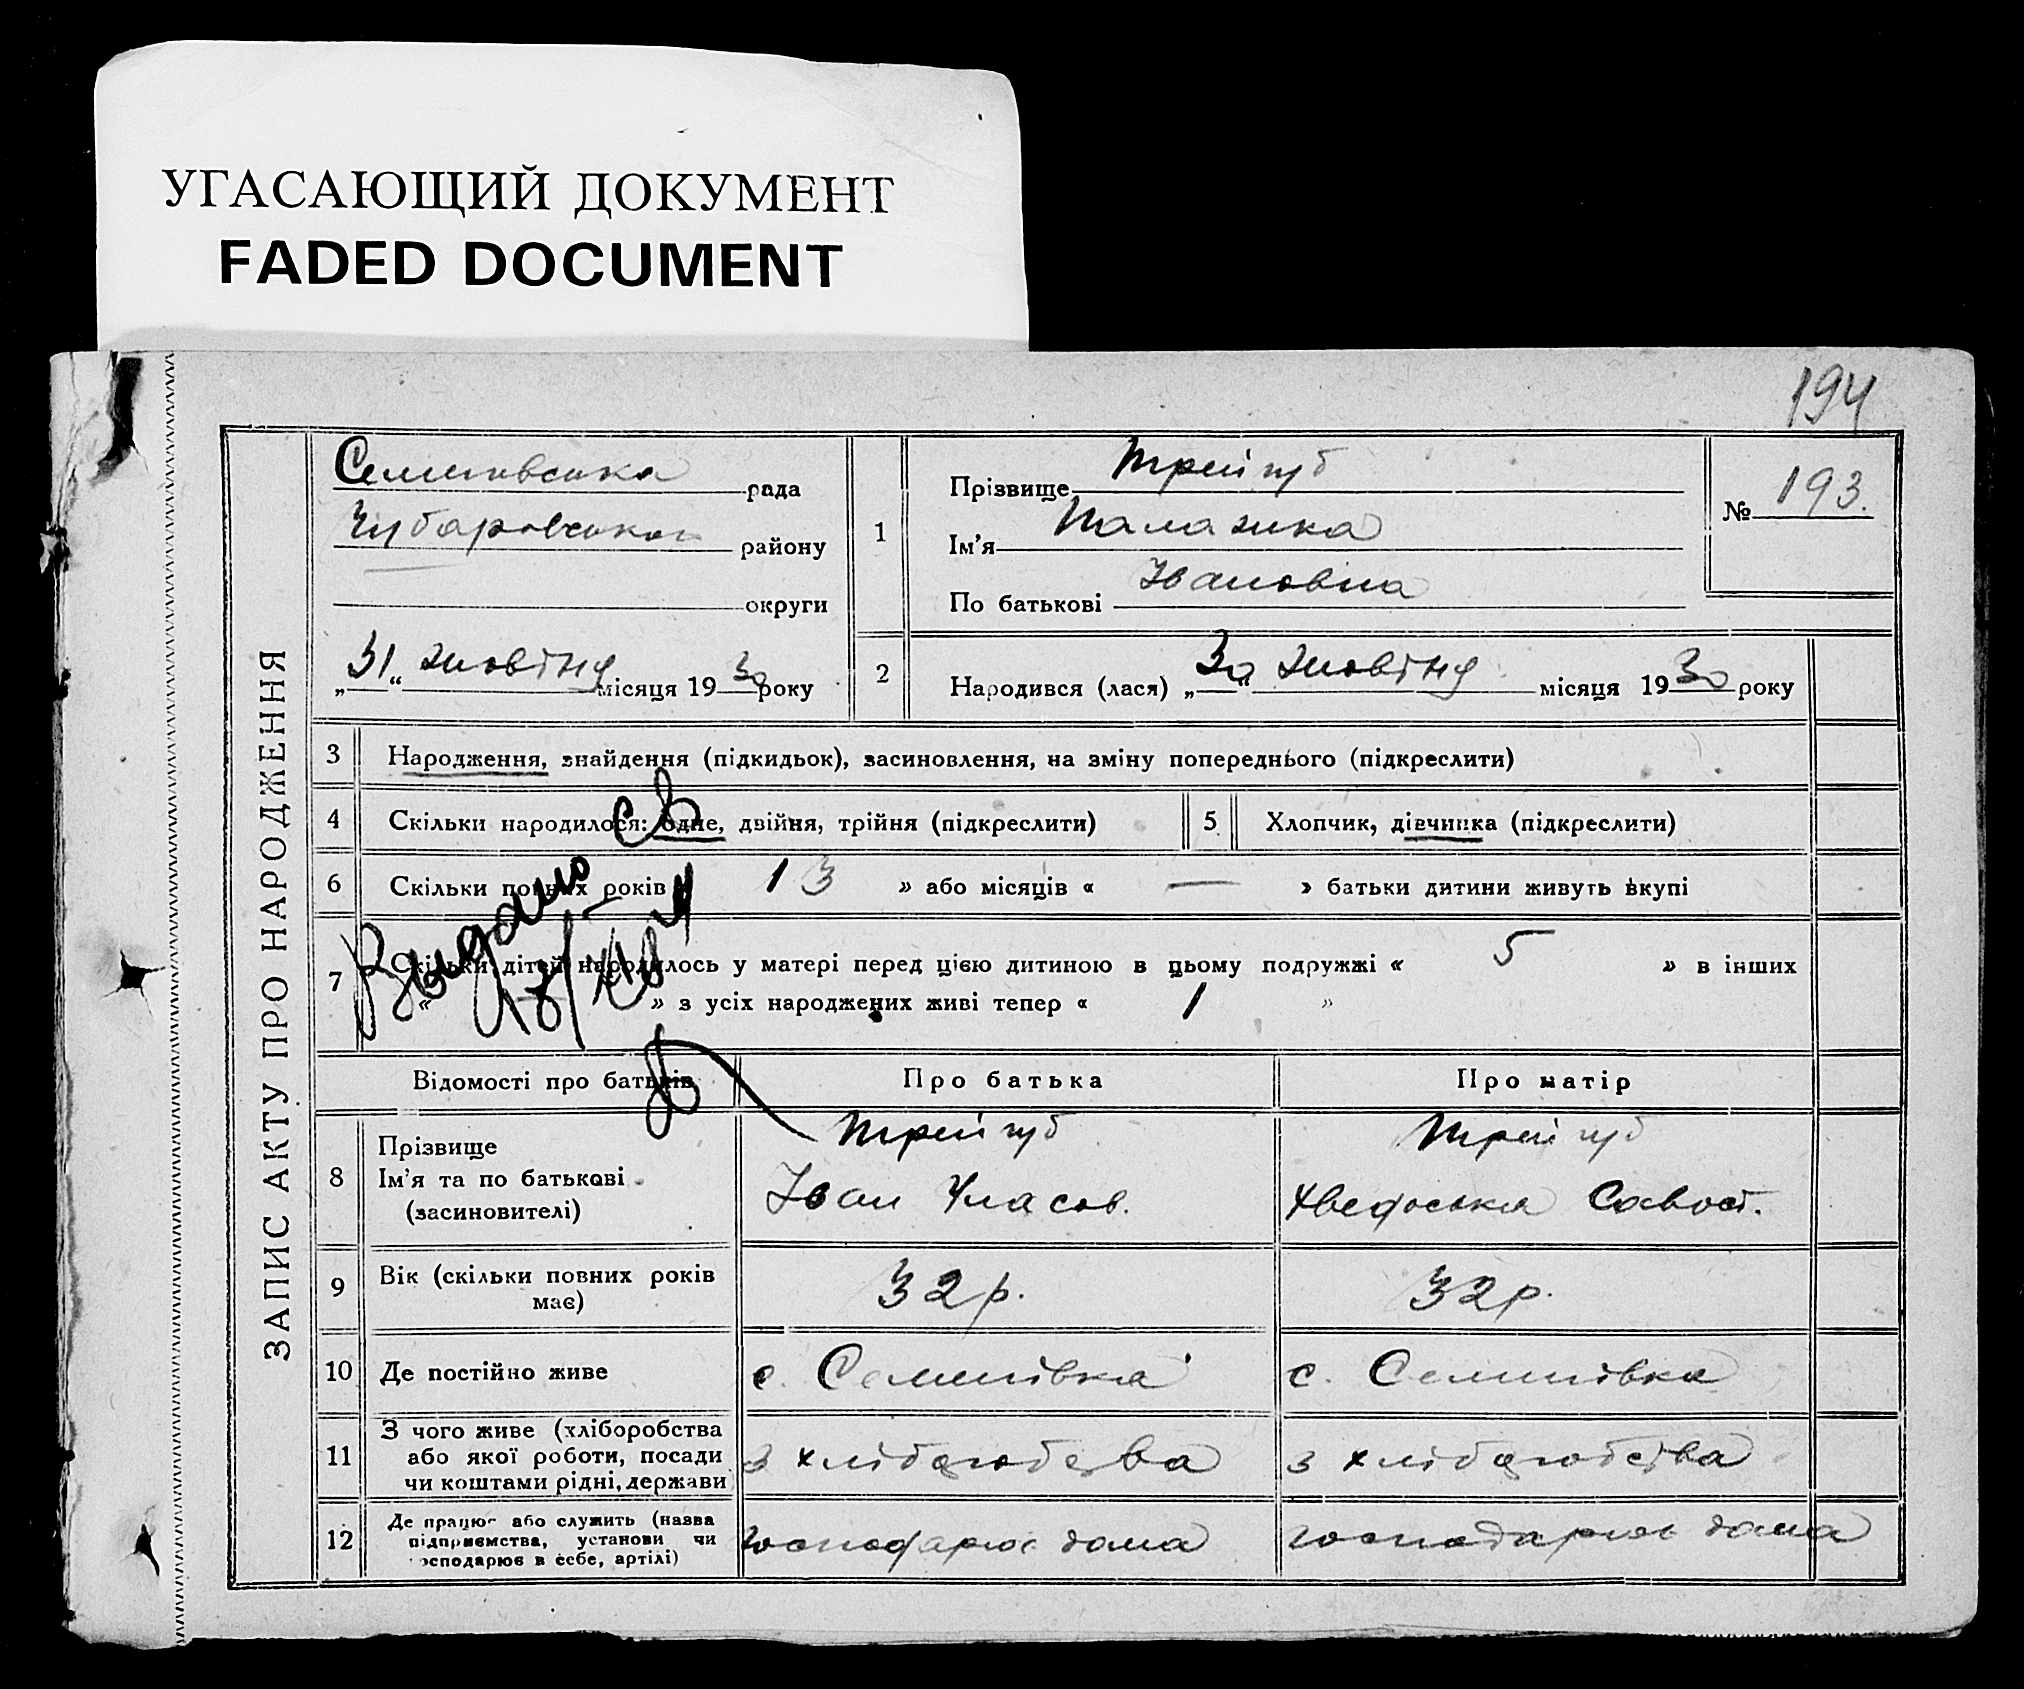 УГАСАЮЩИЙ ДОКУМЕНТ
FADED DOCUMENT
194
ЗАПИС АКТУ ПРО НАРОДЖЕННЯ
рада
Чубаровського району
округи
„31“ жовтня місяця 1930 року
1
Прізвище Трейгуб
Ім'я Палажка
По батькові Івановна
№ 193.
2
Народився (лася) „30“ жовтня місяця 1930 року
3 Народження, знайдення (підкидьок), засиновлення, на зміну попереднього (підкреслити)
4 Скільки народилося: одне, двійня, трійня (підкреслити)
5 Хлопчик, дівчинка (підкреслити)
6 Скільки повних років 13 » або місяців « — » батьки дитини живуть вкупі
7 Скільки дітей народилось у матері перед цією дитиною в цьому подружжі « 5 » в інших
« » з усіх народжених живі тепер « 1 »
Видано
Відомості про батьків
Про батька
Про матір
8 Прізвище
Ім'я та по батькові
(засиновителі)
Трейгуб
Іван Уласов.
Трейгуб
Хведоська Савост.
9 Вік (скільки повних років
має)
32 р.
32 р.
10 Де постійно живе
с. Семенівка
с. Семенівка
11 З чого живе (хліборобства
або якої роботи, посади
чи коштами рідні, держави
з хліборобства
з хліборобства
12 Де працює або служить (назва
підприємства, установи чи
господарює в себе, артілі)
господарює дома
господарює дома